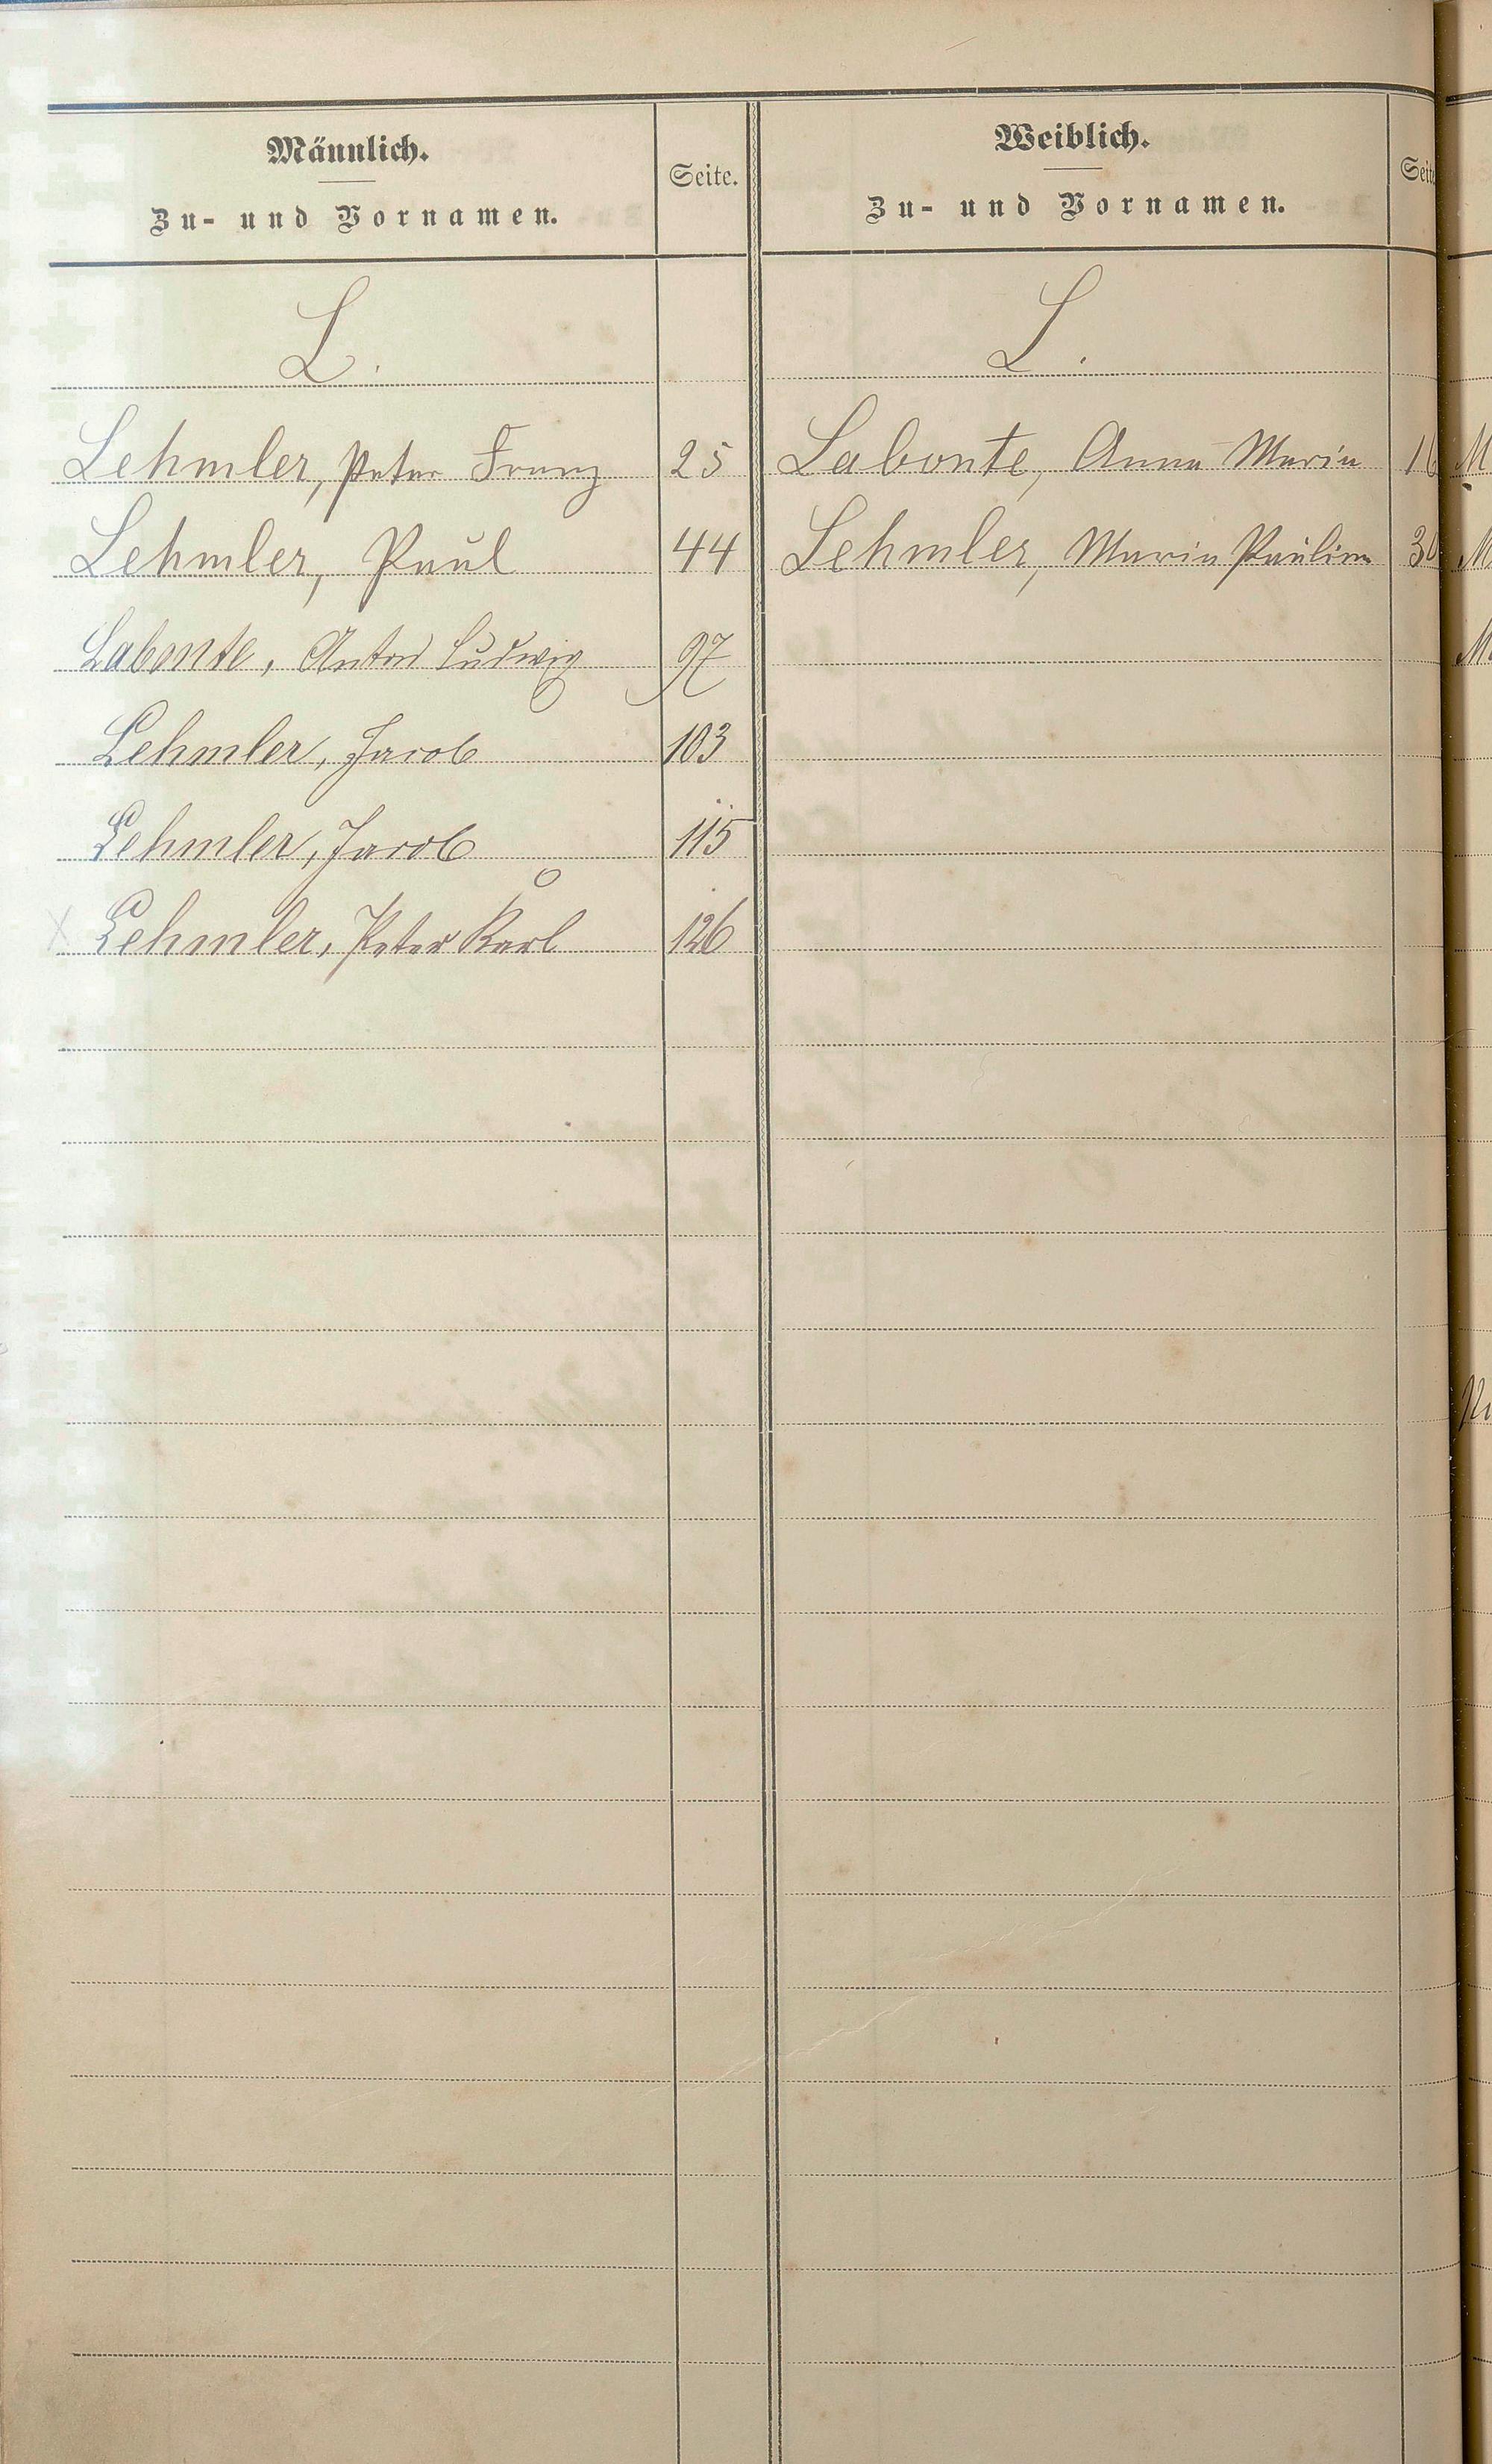 Männlich.
Zu- und Vornamen.
Seite.
Weiblich.
Zu- und Vornamen.
Seite
L.
L.
Lehmler, Peter Franz 25
Labonte, Anna Maria 16
Lehmler, Paul 44
Lehmler, Maria Paulina
Labonte, Anton Ludwig 97
Lehmler, Jacob 103
Lehmler, Jacob 115
x Lehmler, Peter Karl 126